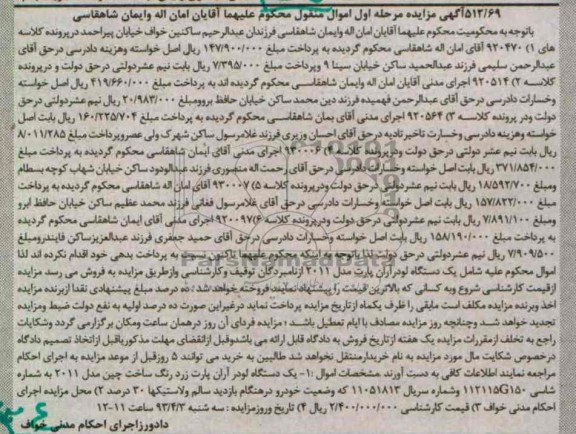 ۵۱۲/۶۹آگهی مزایده مرحله اول اموال منقول محکوم علیهما آقایان امان اله وایمان شاهقاسی
باتوجه به محکومیت محکوم علیهما آقایان امان اله وایمان شاهقاسی فرزندان عبدالرحیم ساکنین خواف خیابان پیراحمد درپرونده کلاسه
های ۱) ۹۲۰۴۷۰ آقای امان اله شاهقاسی محکوم گردیده به پرداخت مبلغ ۱۴۷/۹۰۰/۰۰۰ ریال اصل خواسته وهزینه دادرسی درحق آقای
عبدالرحمن سلیمی فرزند عبدالحمید ساکن خیابان سینا ۹ وپرداخت مبلغ ۷/۳۹۵/۰۰۰ ریال بابت نیم عشردولتی درحق دولت و درپرونده
کلاسه ۲) ۹۲۰۵۱۴ اجرای مدنی آقایان امان اله وایمان شاهقاسی محکوم گردیده اند به پرداخت مبلغ ۴۱۹/۶۶۰/۰۰۰ ریال اصل خواسته
وخسارات دادرسی درحق آقای عبدالرحمن فهمیده فرزند دین محمد ساکن خیابان حافظ برومبلغ ۲۰/۹۸۳/۰۰۰ ریال نیم عشردولتی درحق
دولت ودر پرونده کلاسه ۳) ۹۲۰۵۶۴ اجرای مدنی آقای یمان شاهقاسی محکوم گردیده به پرداخت مبلغ ۱۶۰/۲۲۵/۷۰۴ ریال بابت اصل
خواسته وهزینه دادرسی وخسارت تاخیر تادیه درحق آقای احسان وزیری فرزند غلامرسول ساکن شهرک ولی عصروپرداخت مبلغ ۸/۰۱۱/۲۸۵
ریال بابت نیم عشر دولتی درحق دولت ودرپرونده کلاسه ۴) ۹۳۰۰۰۶ اجرای مدنی آقای ایمان شاهقاسی محکوم گردیده به پرداخت مبلغ
۳۷۱/۸۵۴/۰۰۰ ریال بابت اصل خواسته وخسارات دادرسی درحق آقای رحمت اله منصوری فرزند عبدالودود ساکن خیابان شهاب کوچه بسطام
ومبلغ ۱۸/۵۹۲/۷۰۰ ریال بابت نیم عشردولتی درحق دولت ودرپرونده کلاسه ۵) ۹۳۰۰۰۷ آقای امان اله شاهقاسی محکوم گردیده به پرداخت
مبلغ ۱۵۷/۸۲۲/۰۰۰ ریال بابت اصل خواسته وخسارات دادرسی درحق آقای غلامرسول فغانی فرزند محمد عظیم ساکن خیابان حافظ ابرو
ومبلغ ۷/۸۹۱/۱۰۰ ریال بابت نیم عشردولتی درحق دولت ودرپرونده کلاسه ۶) ۹۲۰۰۹۷ اجرای مدنی آقای ایمان شاهقاسی محکوم گردیده
به پرداخت مبلغ ۱۵۸/۱۹۰/۰۰۰ ریال بابت اصل خواسته وخسارات دادرسی درحق آقای حمید جعفری فرزند عبدالعزیزساکن فایندرومبلغ
۷/۹۰۹/۵۰۰ ریال نیم عشردولتی درحق دولت لذا باتوجه به اینکه محکوم علیهما تاکنون نسبت به پرداخت بدهی خود اقدام نکرده اند لذا
اموال محکوم علیه شامل یک دستگاه لودرآران پارت مدل ۲۰۱۱ ازنامبردگان توقیف وکارشناسی وازطریق مزایده به فروش می رسد مزایده
ازقیمت کارشناسی شروع وبه کسانی که بالاترین قیمت را پیشنهاد نمایند فروخته خواهد شد؛ ده درصد مبلغ پیشنهادی نقدا ازبرنده مزایده
اخذ وبرنده مزایده مکلف است مابقی را ظرف یکماه ازتاریخ مزایده پرداخت نماید درغیراین صورت ده درصد اولیه به نفع دولت ضبط ومزایده
تجدید خواهد شد وچنانچه روز مزایده مصادف باایام تعطیل باشد ؛ مزایده فردای آن روز درهمان ساعت ومکان برگزارمی گردد وشکایات
راجع به تخلف ازمقررات مزایده یک هفته ازتاریخ فروش به دادگاه قابل ارائه می باشدوقبل ازانقضای مهلت مذکوریاقبل ازاتخاذ تصمیم دادگاه
درخصوص شکایت مال مورد مزایده به نام خریدارمنتقل نخواهد شد طالبین به خرید می توانند ۵ روزقبل از موعد مزایده به اجرای احکام
مراجعه نمایند اطلاعات کافی به دست آورند مشخصات اموال :۱- یک دستگاه لودر آران پارت زرد رنگ ساخت چین مدل ۲۰۱۱ به شماره
شاسی ۱۱۲۱۱۵G۱۵۰ وشماره سریال ۱۱۰۵۱۸۱۳ که وضعیت خودرو درهنگام بازدید سالم ولاستیکها ۳۰ درصد ۲) محل مزایده اجرای
احکام مدنی خواف ۳) قیمت کارشناسی ۲/۴۰۰/۰۰۰/۰۰۰ ریال ۴) تاریخ وروزمزایده : سه شنبه ۹۳/۴/۳ ساعت ۱۱-۱۲
دادورزاجرای احکام مدنی خواف